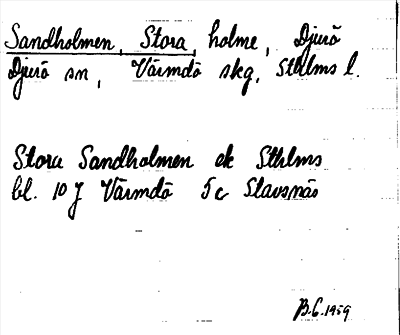 Sandholmen, Stora, holme, Djurö
Djurö sn, Värmdö skg, Sthlms l.
Stora Sandholmen ek Sthlms
bl. 10 J Värmdö 5c Stavsnäs
B.C. 1959